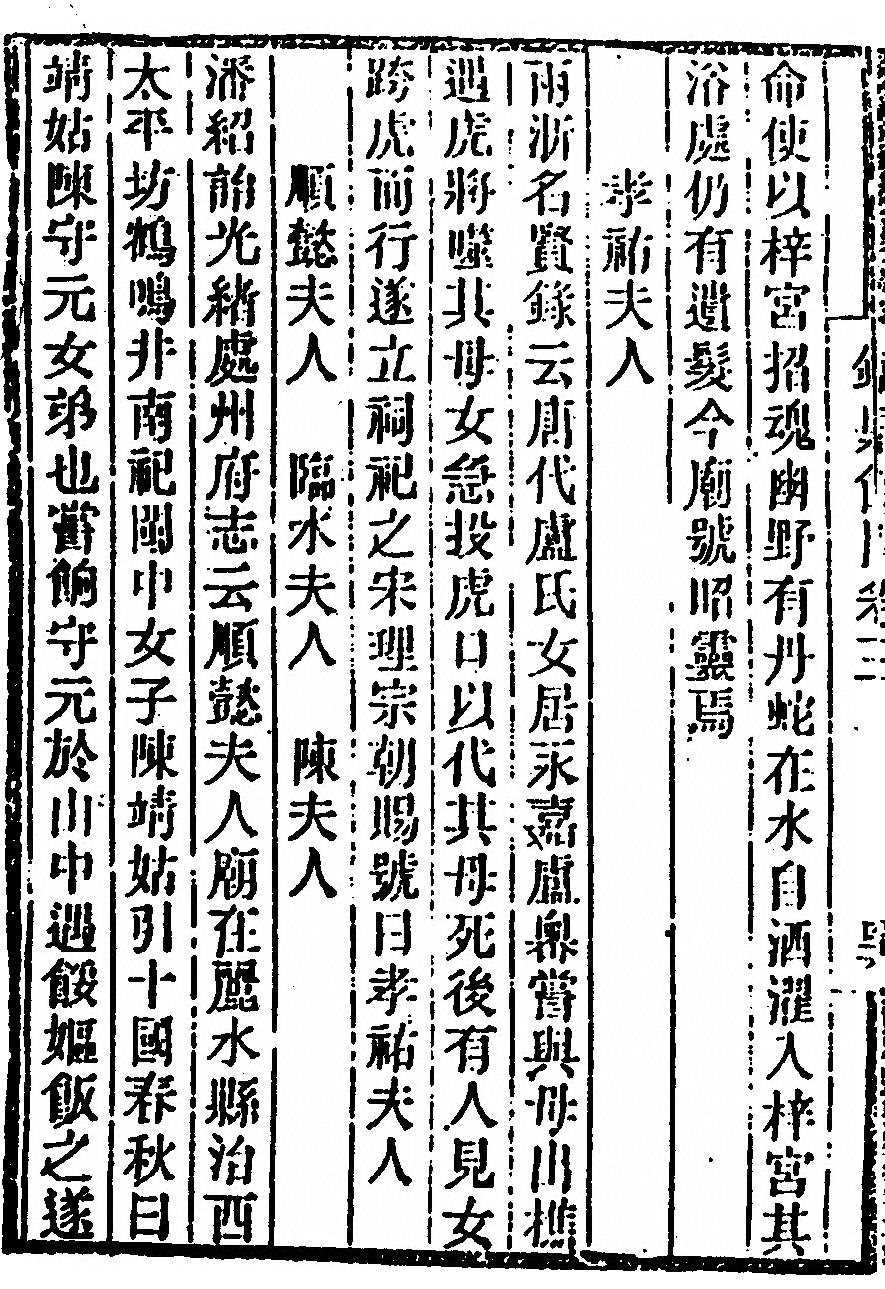 命使以梓宮招魂幽野有丹蛇在水自洒濯入梓宮其
浴處仍有遺髮今廟號昭靈焉
孝祐夫人
兩浙名賢錄云唐代盧氏女居永嘉盧嶴嘗與母出樵
遇虎將噬其母女急投虎口以代其母死後有人見女
跨虎而行遂立祠祀之宋理宗朝賜號曰孝祐夫人
順懿夫人 臨水夫人 陳夫人
潘紹詒光緒處州府志云順懿夫人廟在麗水縣治西
太平坊鶴鳴井南祀閩中女子陳靖姑引十國春秋曰
靖姑陳守元女弟也嘗餉守元於山中遇餒嫗飯之遂